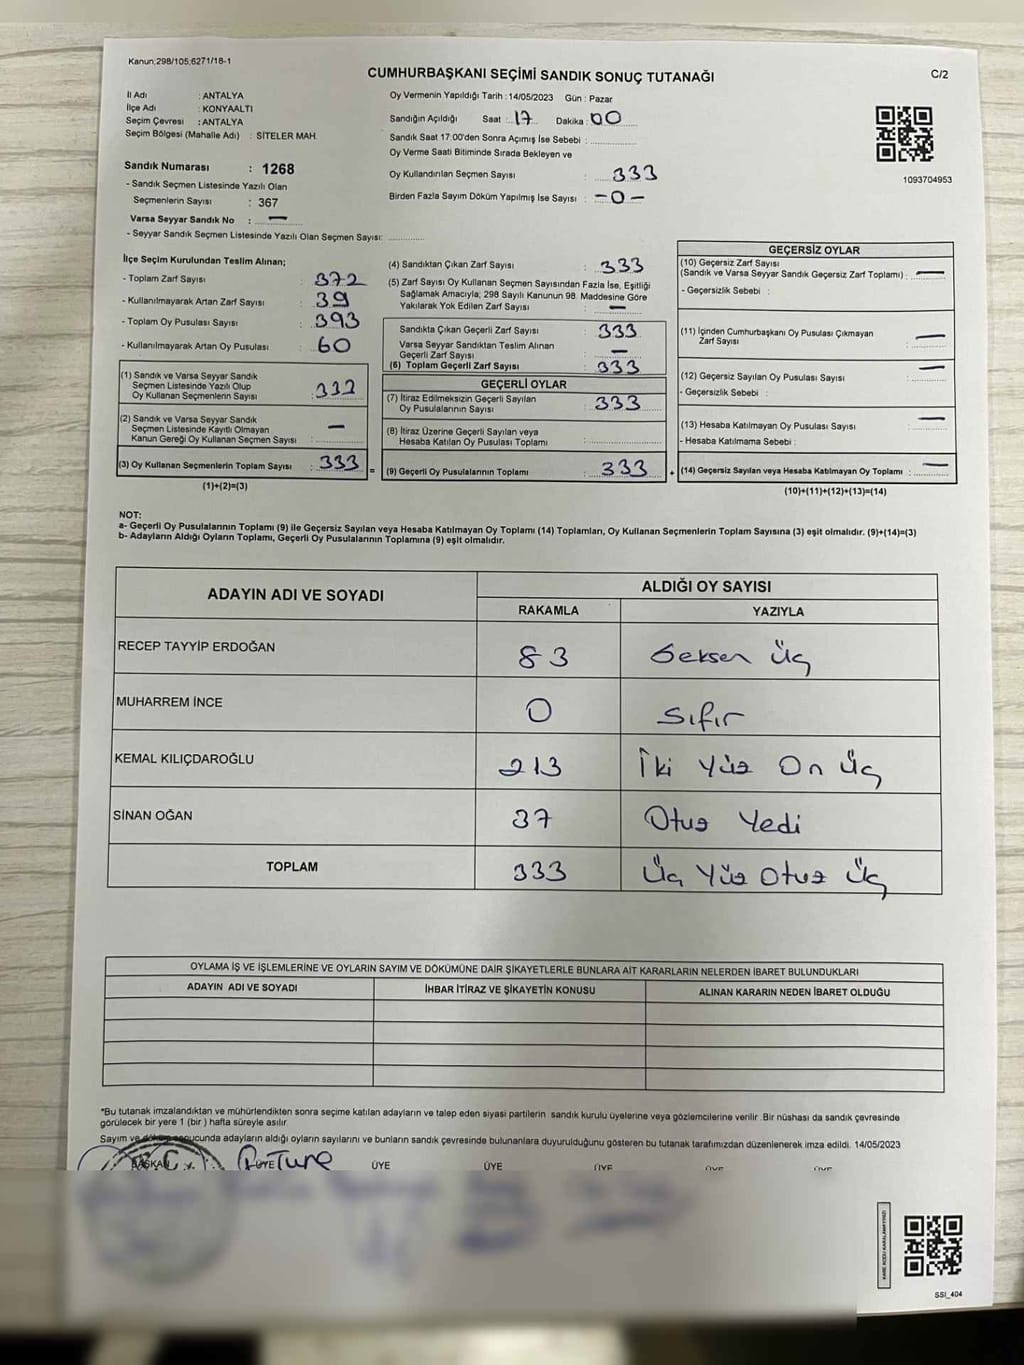 Kanun;298/105;6271/18-1
CUMHURBAŞKANI SEÇİMİ SANDIK SONUÇ TUTANAĞI
C/2
İl Adı : ANTALYA
İlçe Adı : KONYAALTI
Seçim Çevresi : ANTALYA
Seçim Bölgesi (Mahalle Adı) : SİTELER MAH.
Oy Vermenin Yapıldığı Tarih : 14/05/2023 Gün : Pazar
Sandığın Açıldığı Saat : 17 Dakika : 00
Sandık Saat 17:00'den Sonra Açımış İse Sebebi :
Oy Verme Saati Bitiminde Sırada Bekleyen ve
Oy Kullandırılan Seçmen Sayısı : 333
Birden Fazla Sayım Döküm Yapılmış İse Sayısı : -0-
1093704953
Sandık Numarası : 1268
- Sandık Seçmen Listesinde Yazılı Olan
Seçmenlerin Sayısı : 367
Varsa Seyyar Sandık No : —
- Seyyar Sandık Seçmen Listesinde Yazılı Olan Seçmen Sayısı:
İlçe Seçim Kurulundan Teslim Alınan;
- Toplam Zarf Sayısı : 372
- Kullanılmayarak Artan Zarf Sayısı : 39
- Toplam Oy Pusulası Sayısı : 393
- Kullanılmayarak Artan Oy Pusulası : 60
(1) Sandık ve Varsa Seyyar Sandık
Seçmen Listesinde Yazılı Olup
Oy Kullanan Seçmenlerin Sayısı : 333
(2) Sandık ve Varsa Seyyar Sandık
Seçmen Listesinde Kayıtlı Olmayan
Kanun Gereği Oy Kullanan Seçmen Sayısı : —
(3) Oy Kullanan Seçmenlerin Toplam Sayısı : 333 =
(1)+(2)=(3)
(4) Sandıktan Çıkan Zarf Sayısı : 333
(5) Zarf Sayısı Oy Kullanan Seçmen Sayısından Fazla İse, Eşitliği
Sağlamak Amacıyla; 298 Sayılı Kanunun 98. Maddesine Göre
Yakılarak Yok Edilen Zarf Sayısı : —
Sandıkta Çıkan Geçerli Zarf Sayısı : 333
Varsa Seyyar Sandıktan Teslim Alınan
Geçerli Zarf Sayısı : —
(6) Toplam Geçerli Zarf Sayısı : 333
GEÇERLİ OYLAR
(7) İtiraz Edilmeksizin Geçerli Sayılan
Oy Pusulalarının Sayısı : 333
(8) İtiraz Üzerine Geçerli Sayılan veya
Hesaba Katılan Oy Pusulası Toplamı :
(9) Geçerli Oy Pusulalarının Toplamı : 333 +
GEÇERSİZ OYLAR
(10) Geçersiz Zarf Sayısı
(Sandık ve Varsa Seyyar Sandık Geçersiz Zarf Toplamı) : —
- Geçersizlik Sebebi :
(11) İçinden Cumhurbaşkanı Oy Pusulası Çıkmayan
Zarf Sayısı : —
(12) Geçersiz Sayılan Oy Pusulası Sayısı : —
- Geçersizlik Sebebi :
(13) Hesaba Katılmayan Oy Pusulası Sayısı : —
- Hesaba Katılmama Sebebi :
(14) Geçersiz Sayılan veya Hesaba Katılmayan Oy Toplamı : —
(10)+(11)+(12)+(13)=(14)
NOT:
a- Geçerli Oy Pusulalarının Toplamı (9) ile Geçersiz Sayılan veya Hesaba Katılmayan Oy Toplamı (14) Toplamları, Oy Kullanan Seçmenlerin Toplam Sayısına (3) eşit olmalıdır. (9)+(14)=(3)
b- Adayların Aldığı Oyların Toplamı, Geçerli Oy Pusulalarının Toplamına (9) eşit olmalıdır.
ADAYIN ADI VE SOYADI ALDIĞI OY SAYISI
RAKAMLA YAZIYLA
RECEP TAYYİP ERDOĞAN 83 Seksen Üç
MUHARREM İNCE 0 Sıfır
KEMAL KILIÇDAROĞLU 213 İki Yüz On Üç
SİNAN OĞAN 37 Otuz Yedi
TOPLAM 333 Üç Yüz Otuz Üç
OYLAMA İŞ VE İŞLEMLERİNE VE OYLARIN SAYIM VE DÖKÜMÜNE DAİR ŞİKAYETLERLE BUNLARA AİT KARARLARIN NELERDEN İBARET BULUNDUKLARI
ADAYIN ADI VE SOYADI İHBAR İTİRAZ VE ŞİKAYETİN KONUSU ALINAN KARARIN NEDEN İBARET OLDUĞU
*Bu tutanak imzalandıktan ve mühürlendikten sonra seçime katılan adayların ve talep eden siyasi partilerin sandık kurulu üyelerine veya gözlemcilerine verilir .Bir nüshası da sandık çevresinde
görülecek bir yere 1 (bir ) hafta süreyle asılır.
Sayım ve döküm sonucunda adayların aldığı oyların sayılarını ve bunların sandık çevresinde bulunanlara duyurulduğunu gösteren bu tutanak tarafımızdan düzenlenerek imza edildi. 14/05/2023
BAŞKAN ÜYE ÜYE ÜYE ÜYE ÜYE ÜYE
KARE KODU KARALAMAYINIZ!
SSI_404